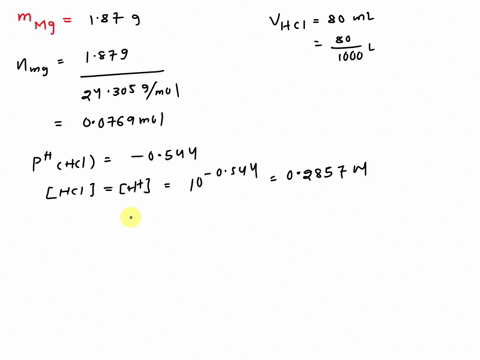 m Mg = 1.87 g
n mg = 1.87g / 24.305 g/mol
= 0.0769 mol
V HCl = 80 mL
= 80/1000 L
PH (HCl) = -0.544
[HCl] = [H+] = 10^-0.544 = 0.2857 M